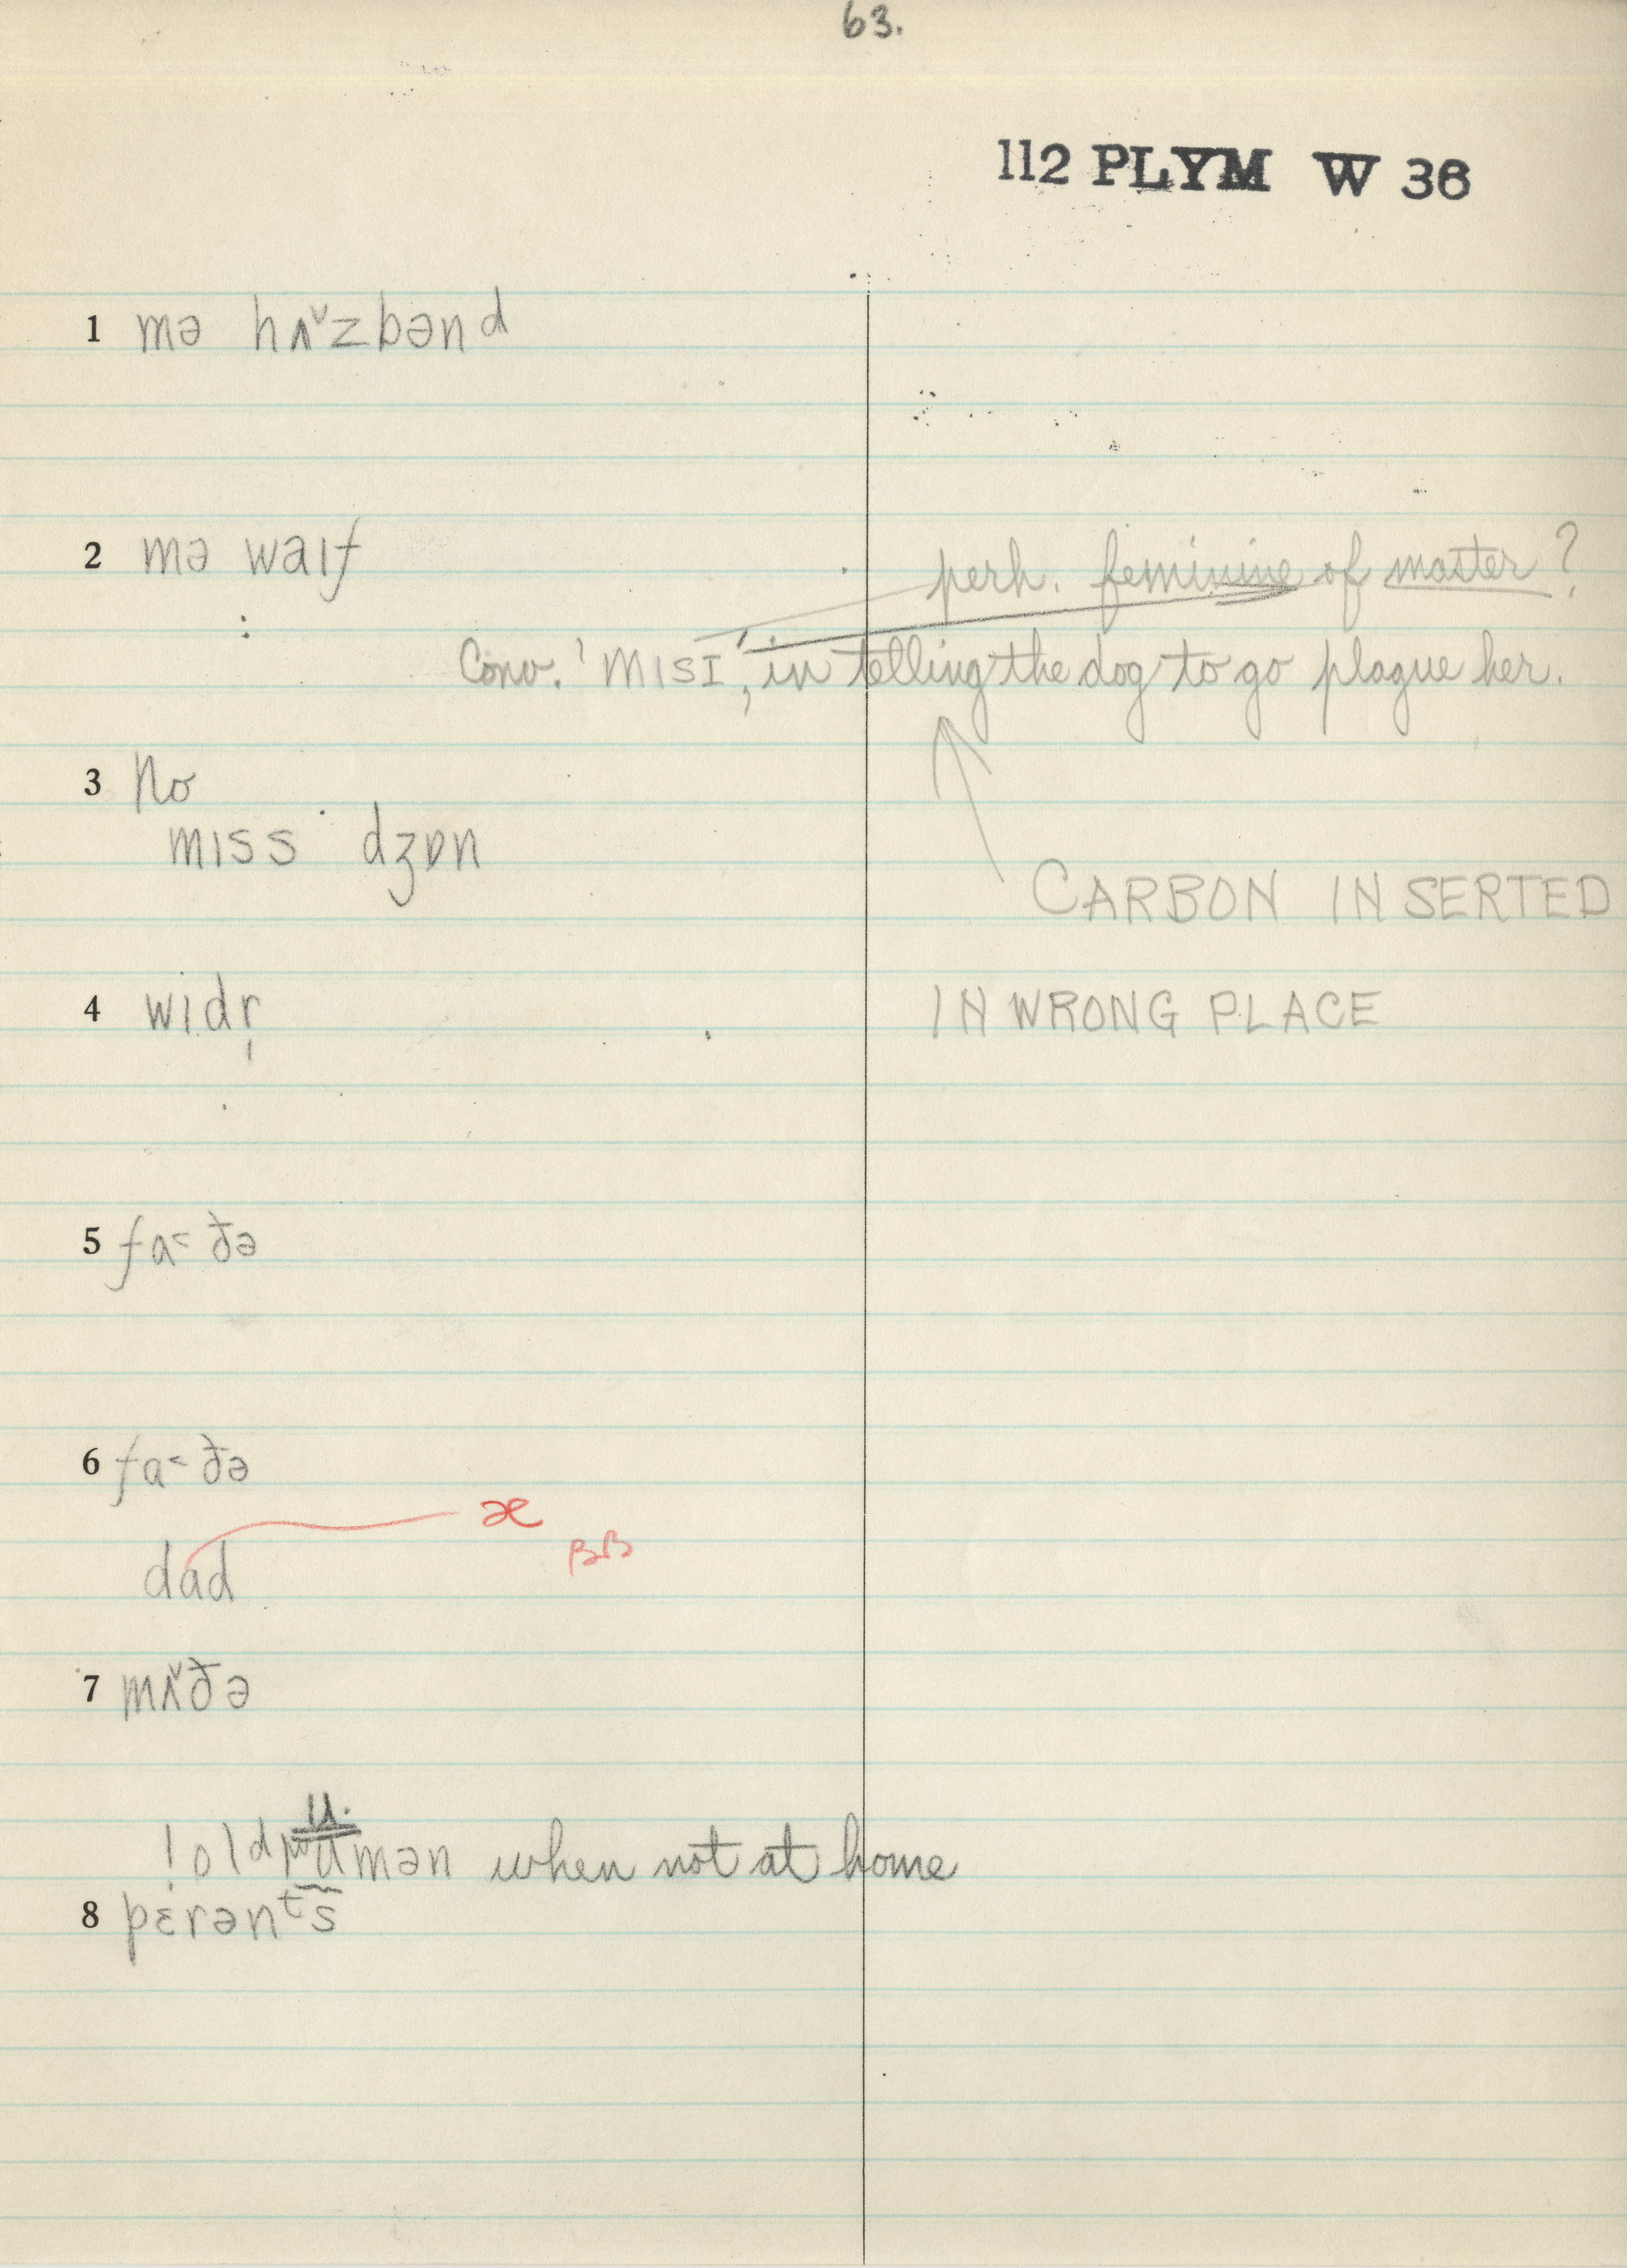 63.
112 PLYM W 36
1 mə hʌ˅zbənd
2 mə waɪf
perh. feminine of master?
Conv. 'mɪsɪ', in telling the dog to go plague her.
3 No
mɪss dʒɒn
CARBON INSERTED
4 wɪdr̩
IN WRONG PLACE
5 fa˂ðə
6 fa˂ðə
æ
BB
dad
7 mʌ̌ðə
! old wumən when not at home
8 pɛrənᵗs